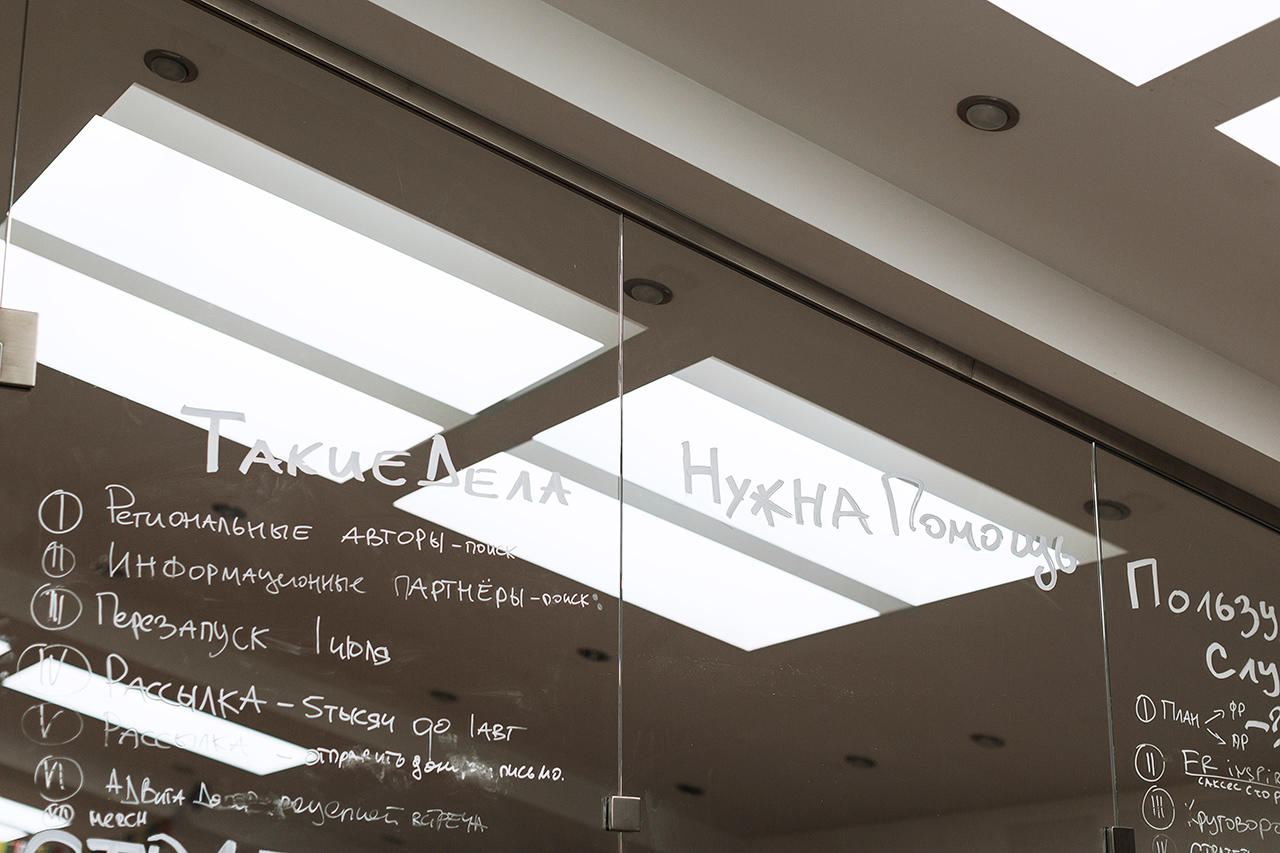 Такие Дела
I Региональные авторы - поиск
II Информационные партнёры - поиск:
III Перезапуск 1 июля
IV Рассылка - 5 тысяч до 1 авт
V Рассылка - отправить письмо.
VI АДВИТА встреча
VII мерсн
Нужна Помощь
Пользу
Слу
I План ФР
ПР
II ER inspir
саксес стор
III круговор
IV